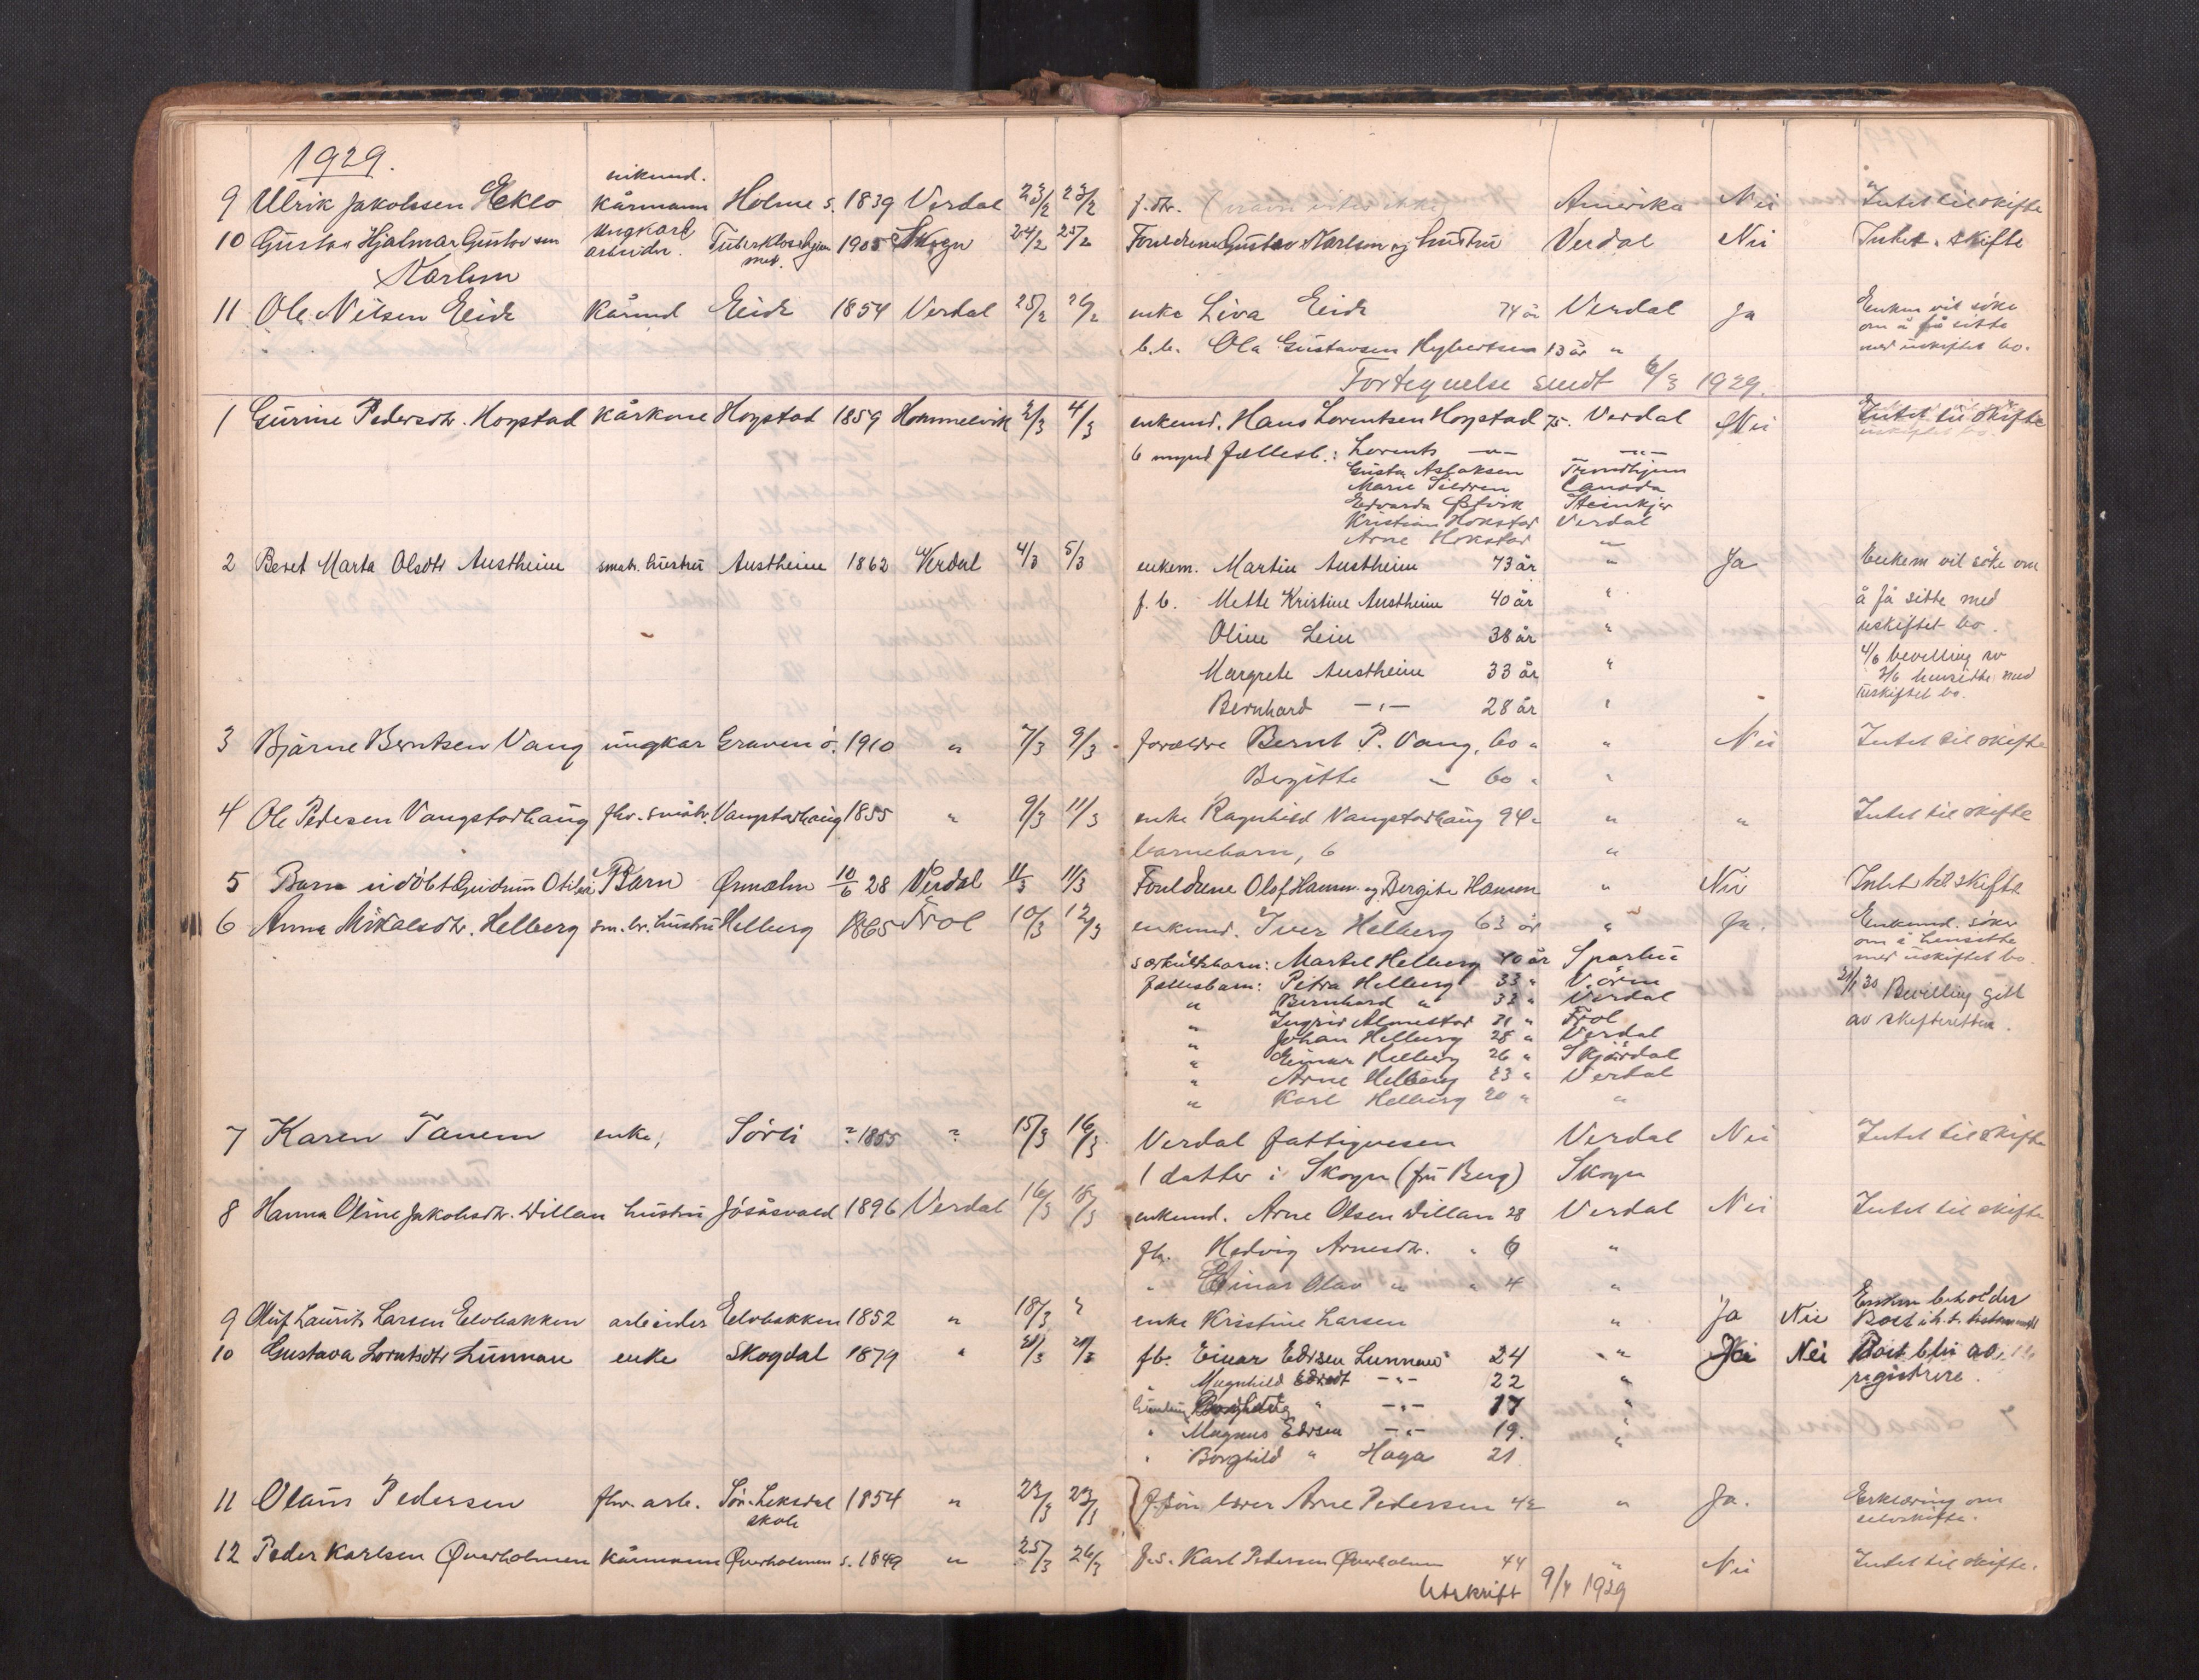 1929.
enkemd.
9 Ulrik Jakobsen Eklo kårmann Holme s. 1839 Verdal 23/2 23/2 f. dtr. Amerika Nei Intet til skifte
10 Gustav Hjalmar Gustavsen ungkarl arbeider. Tuberklosehjem 1905 Skogn 24/2 25/2 Foreldrene Gustav Karlsen og hustru Verdal Nei Intet. skifte
Karlsen
11 Ole Nilsen Eide kårmd Eide 1854 Verdal 25/2 26/2 enke Liva Eide 74 år Verdal Ja Enken vil söke
om å få sitte
b.b. Ola Gustavsen 13 år " med uskiftet bo.
Fortegnelse sendt 6/3 1929.
1 Gurine Pedersdtr. Hogstad kårkone Hogstad 1859 Hommelvik 2/3 4/3 enkemd. Hans Lorentsen Hogstad 75. Verdal Nei Intet til skifte
6 mynd fællesb.: Lorents —"— —"—
Gusta Aslaksen Trondhjem
Marie Canada
Edvarda Steinkjer
Kristian Hokstad Verdal
Arne Hokstad "
2 Beret Marta Olsdtr Austheim smabr. hustru Austheim 1862 Verdal 4/3 5/3 enkem. Martin Austheim 73 år " Ja Enkem vil söke om
f. b. Mette Kristine Austheim 40 år " å få sitte med
Oline Lein 38 år " uskiftet bo.
Margrete Austheim 33 år " 4/6 bevilling av
2/6 hensitte med
Bernhard —"— 28 år " uskiftet bo.
3 Bjarne Berntsen Vang ungkar Graven ö. 1910 " 7/3 9/3 forældre Bernt P. Vang, 60 " " Nei Intet til skifte
Bergitte " 60 " "
4 Ole Pedersen Vangstadhaug fhv. småbr. Vangstadhaug 1855 " 9/3 11/3 enke Ragnhild Vangstadhaug 94 " " " Intet til skifte
barnebarn, 6 "
5 Barn udöbt Gudrun Otilie Barn Örmelen 10/6 28 Verdal 11/3 11/3 Foreldrene Olof Hansen og Bergite Hansen " Nei Intet til skifte
6 Anna Mikalsdtr. Helberg sm. br. hustru Helberg 1865 Frol 10/3 12/3 enkemd. Iver Helberg 63 år " Ja. Enkemd. söker
om å hensitte
særkulsbarn: Martel Helberg 40 år Sparbu med uskiftet bo.
fællesbarn: Petra Helberg 33 " V.öra 31/1 30 Bevilling gitt
" Bernhard " 32 " Verdal
" Ingrid Almestad 31 " Frol av skifteretten.
" Johan Helberg 28 " Verdal
" Einar Helberg 26 " Skjördal
" Arne Helberg 23 " Verdal
" Karl Helberg 20 " "
7 Karen Tanem enke, Sörli ? 1855 ? 15/3 16/3 Verdal fattigvesen Verdal Nei Intet til skifte
1 datter i Skogn (fru Berg) Skogn
8 Hanna Oline Jakobsdtr. Dillan hustru Jösåsvald 1896 Verdal 16/3 18/3 enkemd. Arne Olsen Dillan 28 Verdal Nei Intet til skifte
fb. Hedvig Arnesdtr. " 6 "
" Einar Olav " " 4 "
9 Oluf Laurits Larsen Elvbakken arbeider Elvbakken 1852 " 18/3 ? enke Kristine Larsen " Ja Nei Enken beholder
Boet i h. t. testament
10 Gustava Lorntsdtr Lunnan enke Skogdal 1879 " 21/3 21/3 fb. Einar Edvsen Lunnan 24 " Ja Nei Boet blir av
" Magnhild Edvsdt —"— 22 " registrere.
" —"— 17 "
" Magnus Edvsen —"— 19. "
" Borghild " Haga 21
11 Olaus Pedersen fhv. arb. Sör. Leksdal 1854 " 23/3 23/3 f. sön lærer Arne Pedersen 42 " Ja. Erklæring om
skole selvskifte.
12 Peder Karlsen Överholmen kårmann Överholmen s. 1849 " 25/3 26/3 f.s. Karl Pedersen Överholmen 44 " Nei Intet til skifte.
Utskrift 9/4 1929